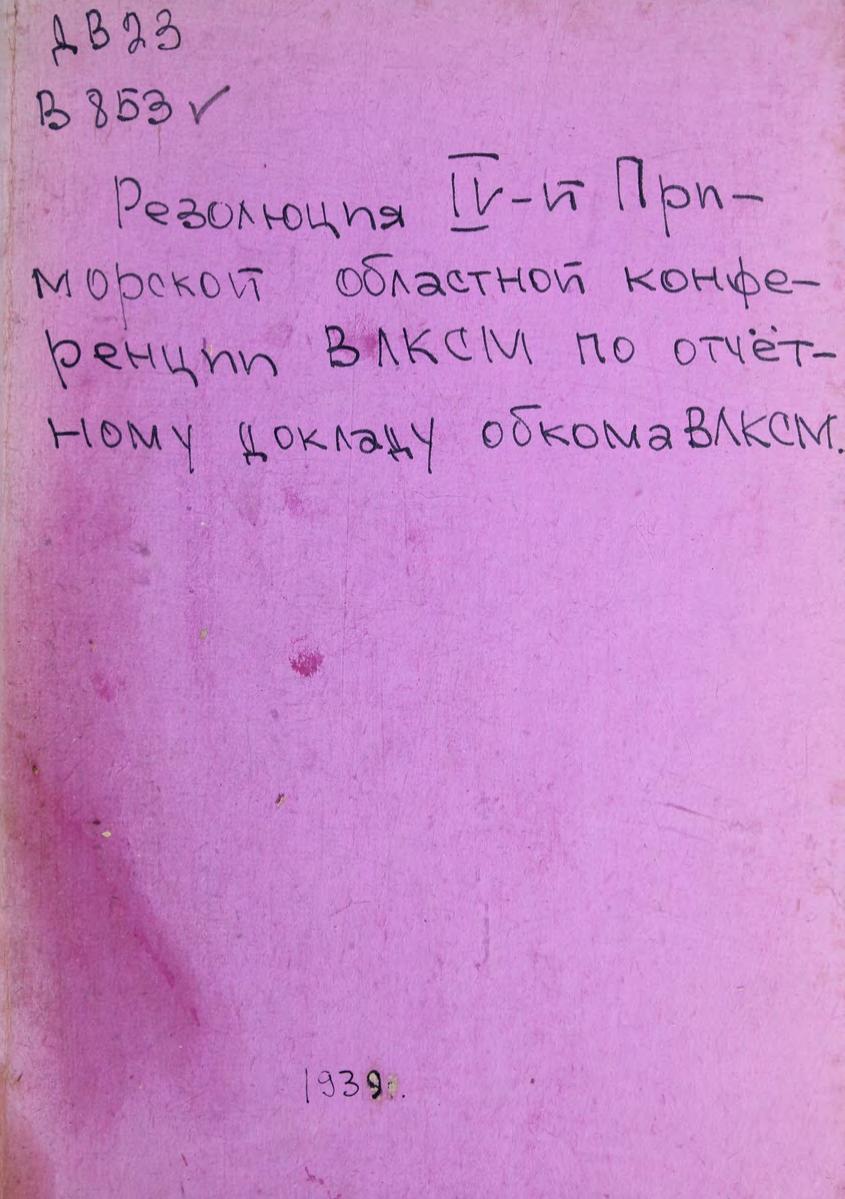 ДВ23
В853✓
Резолюция IV-й При-
морской областной конфе-
ренции ВЛКСМ по отчёт-
ному докладу обкома ВЛКСМ.
1939.